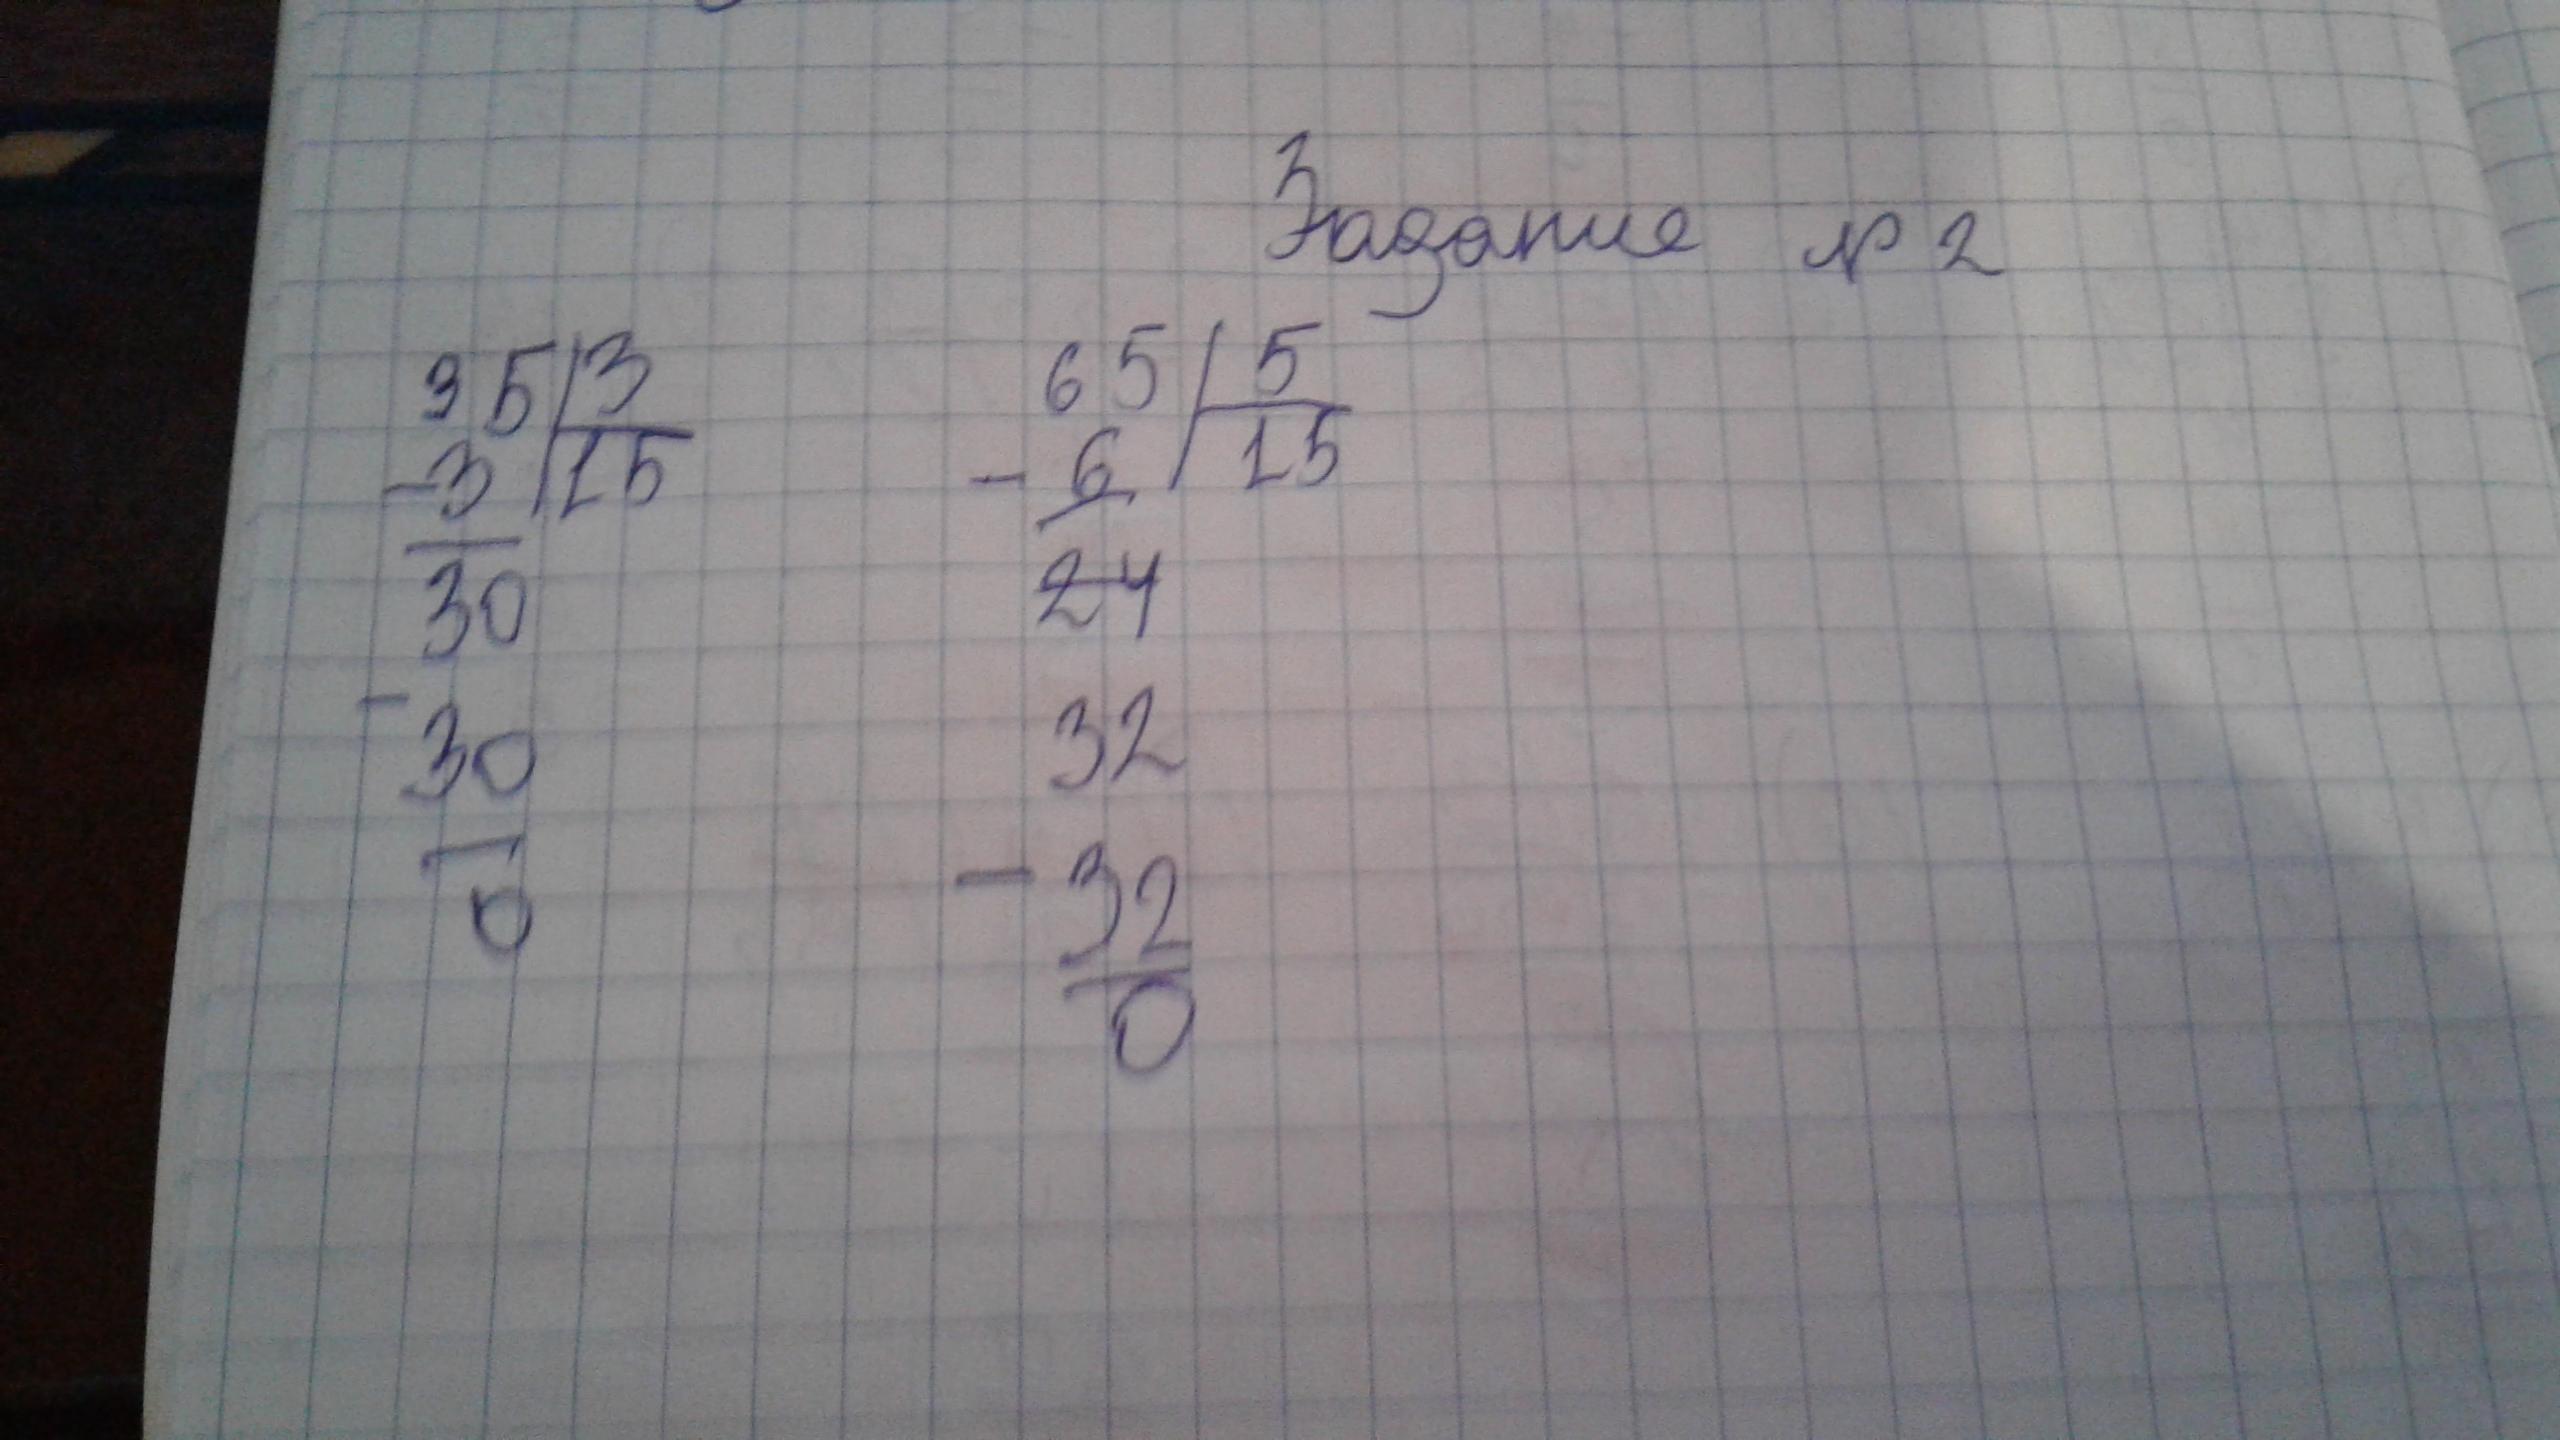 Задание № 2
95 3
-3 15
30
- 30
0
65 5
- 6 15
24
32
- 32
0